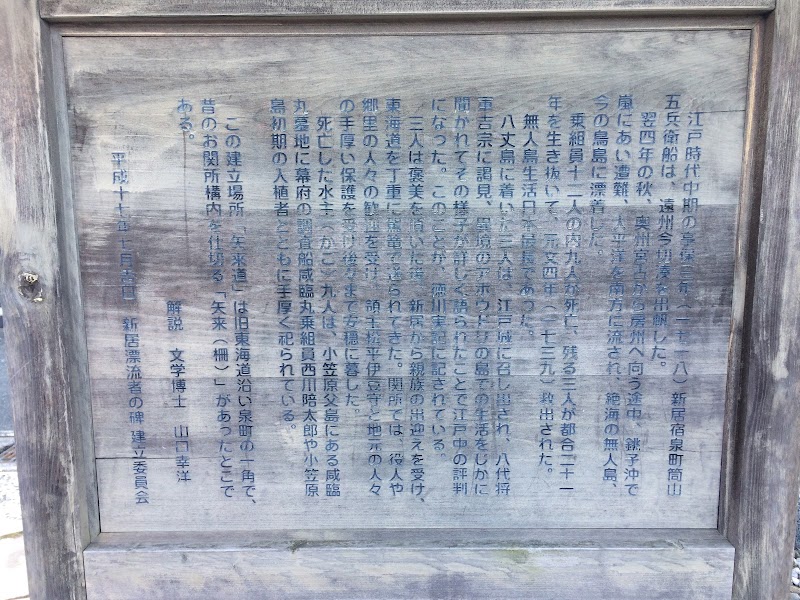 江戸時代中期の享保三年（一七一八）新居宿泉町筒山
五兵衛船は、遠州今切湊を出帆した。
翌四年の秋、奥州宮古から房州へ向う途中、銚子沖で
嵐にあい遭難、太平洋を南方に流され、絶海の無人島、
今の鳥島に漂着した。
乗組員十二人の内九人が死亡、残る三人が都合二十一
年を生き抜いて、元文四年（一七三九）救出された。
無人島生活日本最長であった。
八丈島に着いた三人は、江戸城に召し出され、八代将
軍吉宗に謁見、異境のアホウドリの島での生活をじかに
聞かれてその様子が詳しく語られたことで江戸中の評判
になった。このことが、徳川実記に記されている。
三人は褒美を頂いた後、新居から親族の出迎えを受け、
東海道を丁重に駕籠で送られてきた。関所では、役人や
郷里の人々の歓迎を受け、領主松平伊豆守と地元の人々
の手厚い保護を受け後々まで安穏に暮した。
死亡した水主（かこ）九人は、小笠原父島にある咸臨
丸墓地に幕府の調査船咸臨丸乗組員西川陪太郎や小笠原
島初期の入植者とともに手厚く祀られている。
この建立場所「矢来道」は旧東海道沿い泉町の一角で、
昔のお関所構内を仕切る「矢来（柵）」があったとこで
ある。
解説 文学博士 山口幸洋
平成十七年七月吉日 新居漂流者の碑 建立委員会